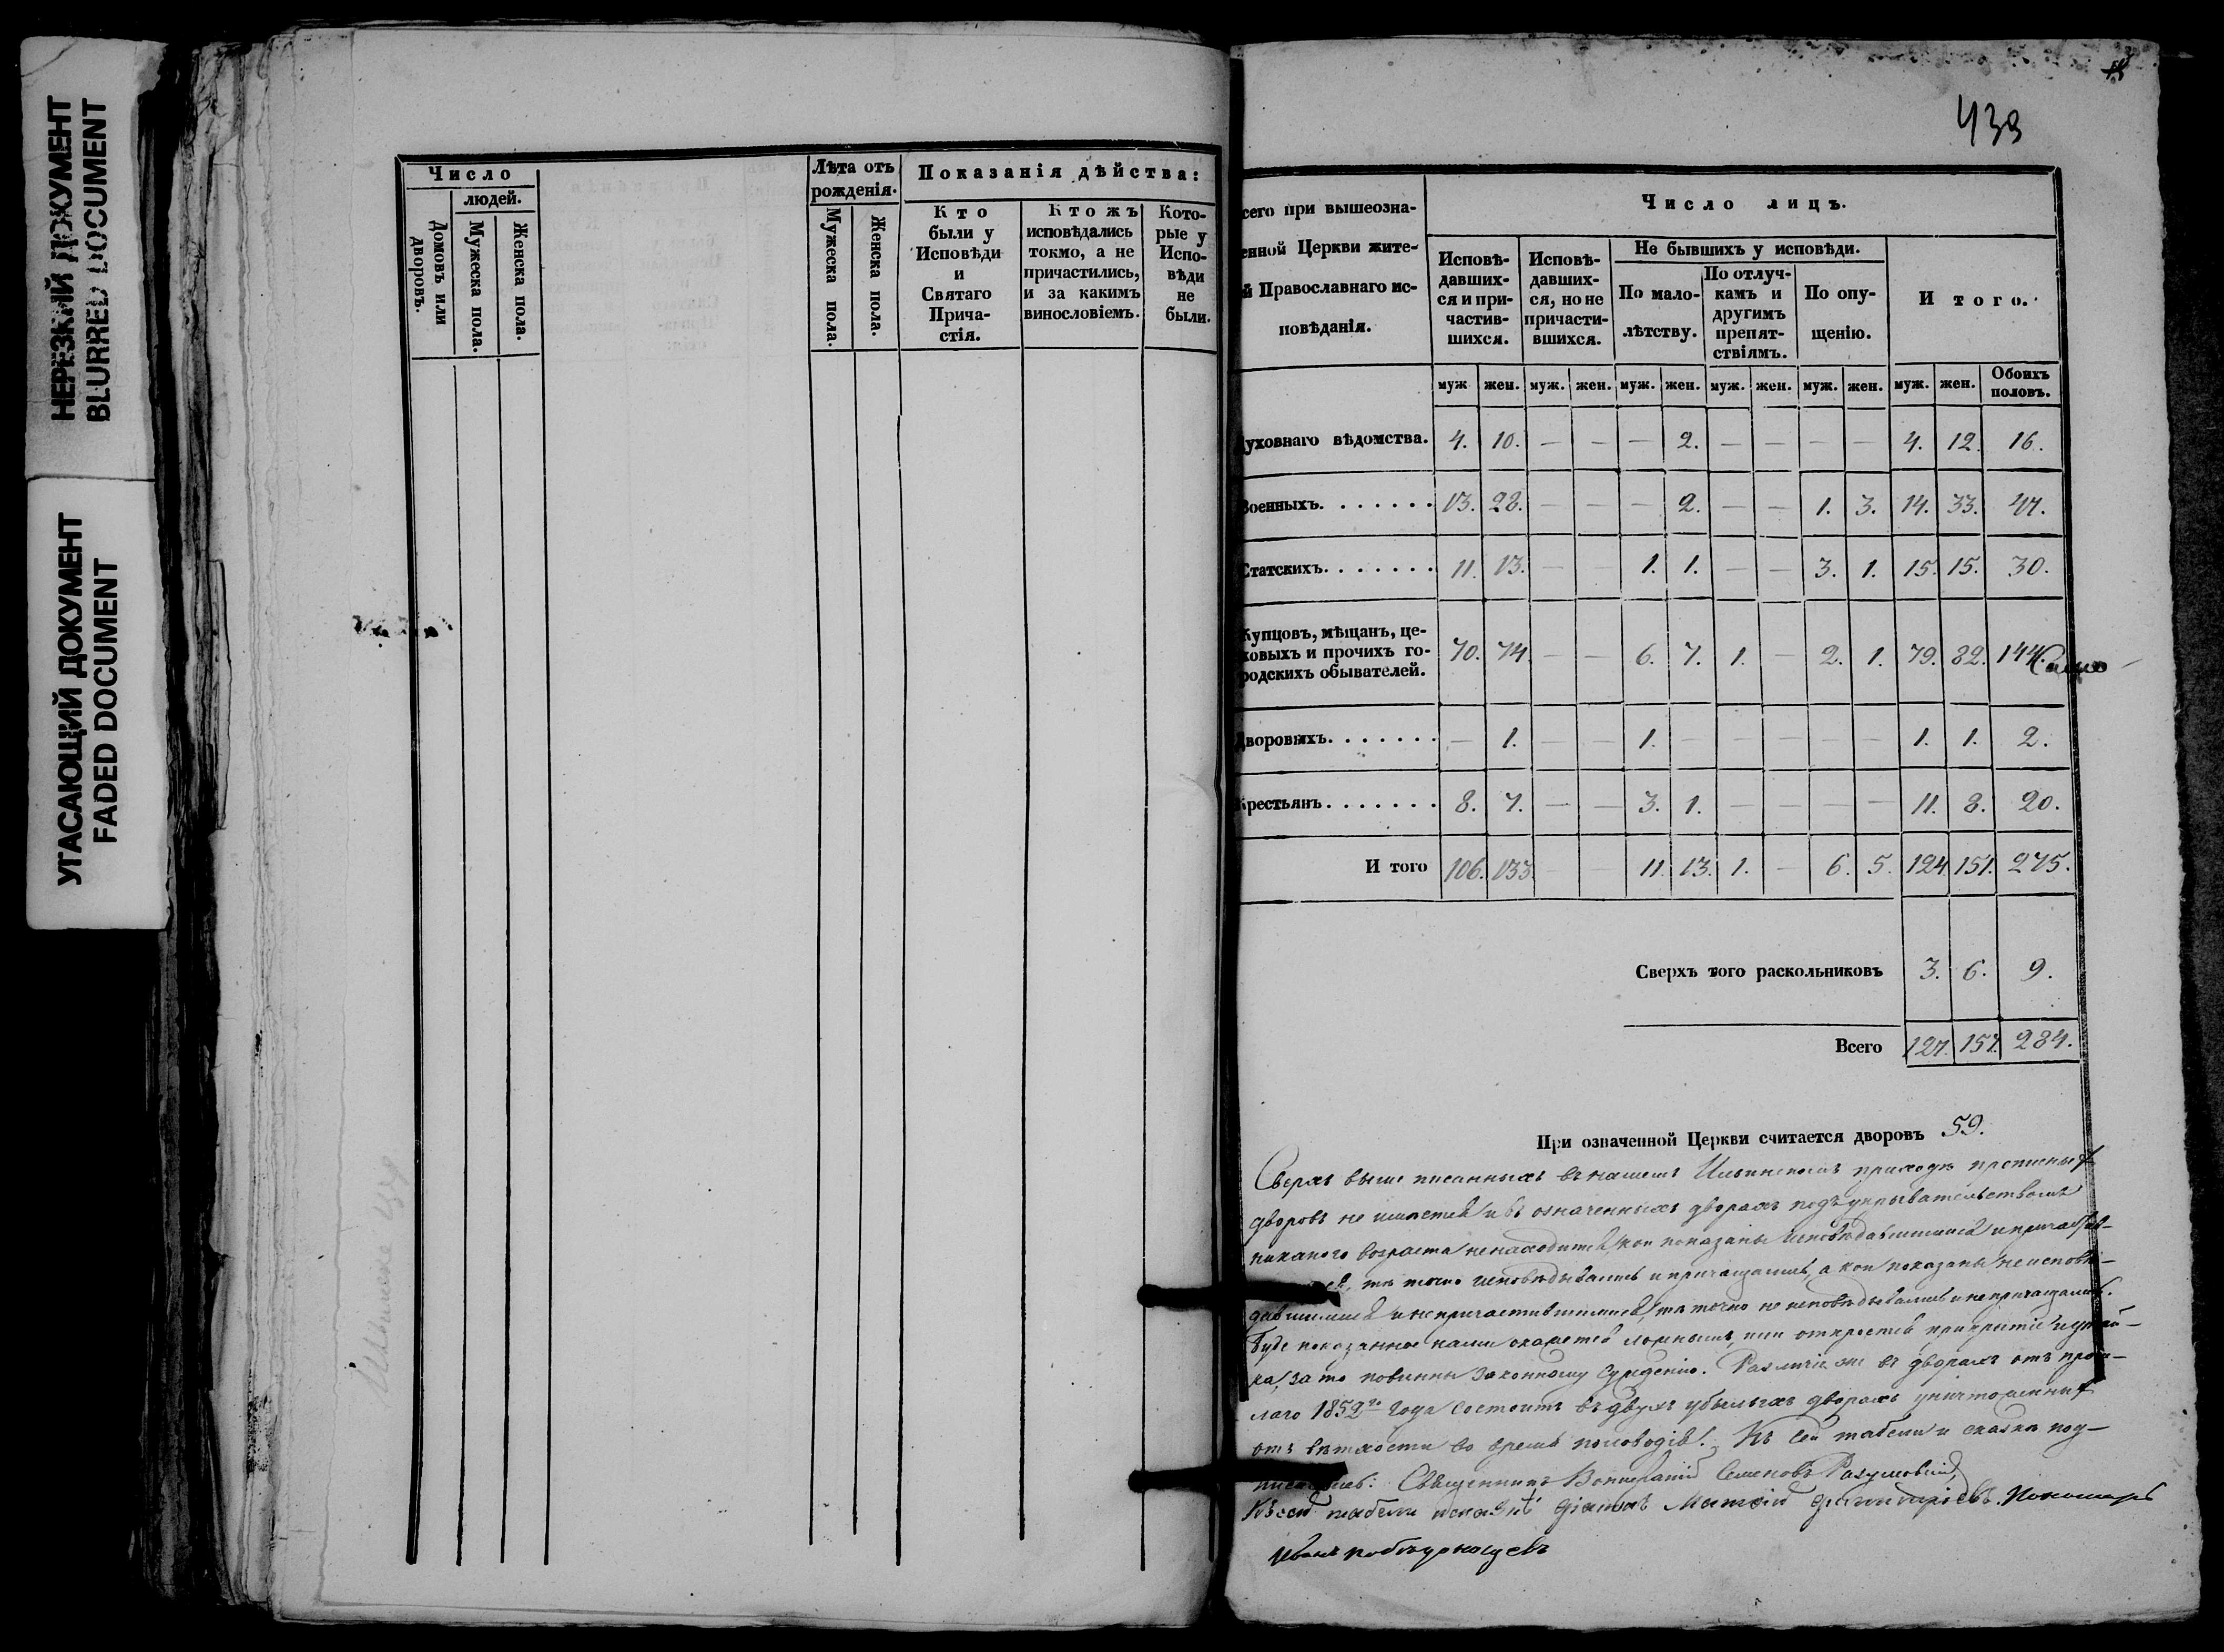 НЕРЕЗКИЙ ДОКУМЕНТ
BLURRED DOCUMENT
УГАСАЮЩИЙ ДОКУМЕНТ
FADED DOCUMENT
Число
людей.
Домовъ или дворовъ.
Мужеска пола.
Женска пола.
Лѣта отъ рожденія.
Мужеска пола.
Женска пола.
Показанія дѣйства:
Кто были у Исповѣди и Святаго Прича-стія.
Кто жъ исповѣдались токмо, а не причастились, и за какимъ винословіемъ.
Кото-рые у Испо-вѣди не были.
433
сего при вышеозна-
енной Церкви жите-
й Православнаго ис-
повѣданія.
Число лицъ.
Исповѣ-давших-ся и при-частив-шихся.
Исповѣ-давших-ся, но не причасти-вшихся.
Не бывшихъ у исповѣди.
По мало-лѣтству.
По отлуч-камъ и другимъ препят-ствіямъ.
По опу-щенію.
И того.
муж. жен. муж. жен. муж. жен. муж. жен. муж. жен. муж. жен. Обоихъ половъ.
уховнаго вѣдомства. 4. 10. — — — 2. — — — — 4. 12. 16.
Военныхъ. 13. 28. — — — 2. — — 1. 3. 14. 33. 47.
Статскихъ. 11. 13. — — 1. 1. — — 3. 1. 15. 15. 30.
Купцовъ, мѣщанъ, це-
ховыхъ и прочихъ го-
родскихъ обывателей. 70. 74. — — 6. 7. 1. — 2. 1. 79. 82.
дворовыхъ. — 1. — — 1. — — — 1. 1. 2.
Крестьянъ. 8. 7. — — 3. 1. — — — — 11. 8. 20.
И того 106. 133. — — 11. 13. 1. — 6. 5. 124. 151. 275.
Сверхъ того раскольниковъ 3. 6. 9.
Всего 127. 157. 284.
При означенной Церкви считается дворовъ 59.
Сверхъ выше писанныхъ въ нашемъ Ильинскомъ приходѣ
дворовъ не имѣется и въ означенныхъ дворахъ подъ укрывательствомъ
никакого возраста не находится, кои показаны исповѣдавшимися и причастив-
тѣ точно исповѣдывались и причащались, а кои показаны не исповѣ-
давшимися и не причастившимися, тѣ точно не исповѣдывались и не причащались.
Буде показанное нами окажется ложнымъ, или откроется прикрытіе и утай-
ка, за то повинны законному сужденію. Различіе же въ дворахъ отъ прош-
лаго 1852го года состоитъ въ двухъ убылыхъ дворахъ
отъ ветхости во время половодія. Къ сей табели и сказкѣ под-
писались: Священникъ Семеновъ Разумовскій,
Къ сей табели діаконъ Матвѣй Димитріевъ. Пономарь
Иванъ